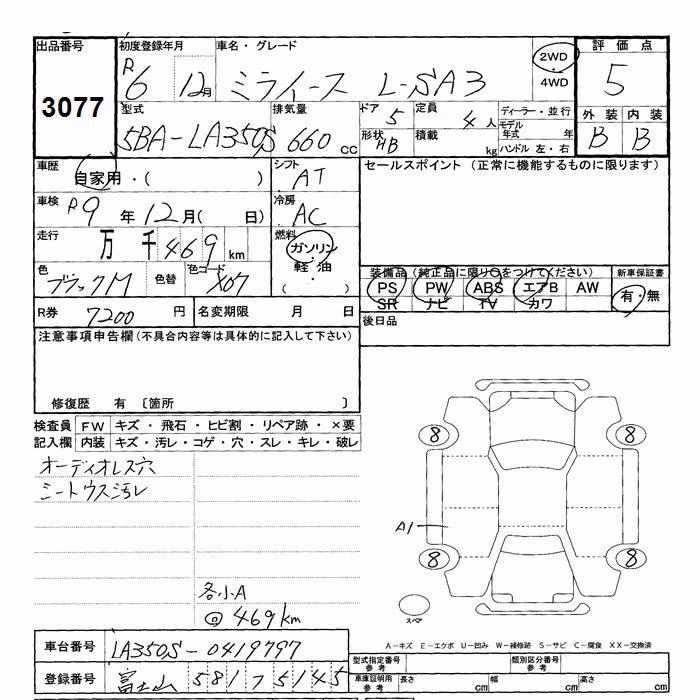 出品番号 初度登録年月 車名・グレード 2WD 評価点
3077 R6 12月 ミライース L-SA3 4WD 5
型式 排気量 ドア 定員 ディーラー・並行 外装 内装
5BA-LA350S 660 CC 5 4人 モデル年式 年 B B
形状 HB 積載 kg ハンドル 左・右
車歴 自家用・( ) シフト AT セールスポイント (正常に機能するものに限ります)
車検 R9年12月( 日) 冷房 AC
走行 万千469km 燃料 ガソリン・軽油 ( )
色 ブラックM 色替 色コード X07
装備品 (純正品に限り○をつけてください) 新車保証書
PS PW ABS エアB AW 有・無
SR ナビ TV カワ
R券 7200円 名変期限 月 日 後日品
注意事項申告欄 (不具合内容等は具体的に記入して下さい)
修復歴 有 〔箇所 〕
検査員 FW キズ・飛石・ヒビ割・リペア跡・×要
記入欄 内装 キズ・汚レ・コゲ・穴・スレ・キレ・破レ
オーディオレス穴
シートウス汚レ
8 8
A1
8 8
各小A
@469km
スペア
A-キズ E-エクボ U-凹み W-補修跡 S-サビ C-腐食 XX-交換済
車台番号 LA350S-0419797
型式指定番号 参考 類別区分番号 参考
登録番号 富士山 581 7 5145
車庫証明用 参考 長さ cm 幅 cm 高さ cm